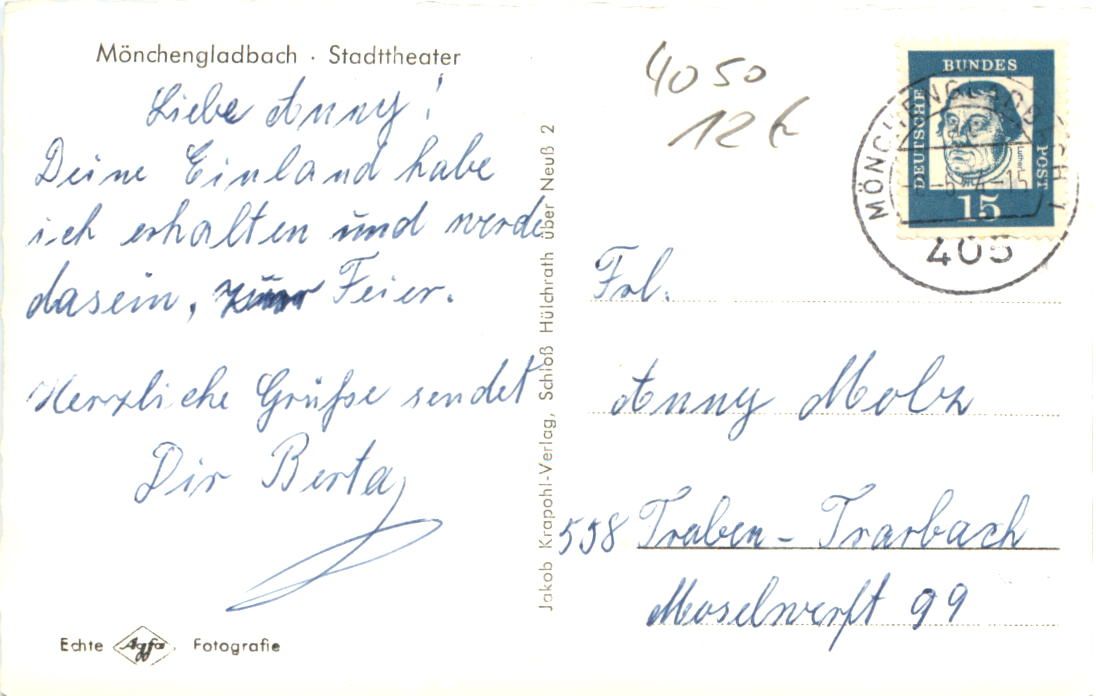 Mönchengladbach · Stadttheater
Liebe Anny!
Deine Einland habe
ich erhalten und werde
dasein, zur Feier.
Herzliche Grüße sendet
Dir Berta
Echte Agfa Fotografie
Jakob Krapohl-Verlag, Schloß Hülchrath über Neuß 2
4050
12 €
DEUTSCHE BUNDES POST
Luther
15
MÖNCHENGLADBACH 1
405
Frl.
Anny Molz
558 Traben-Trarbach
Moselwerft 99